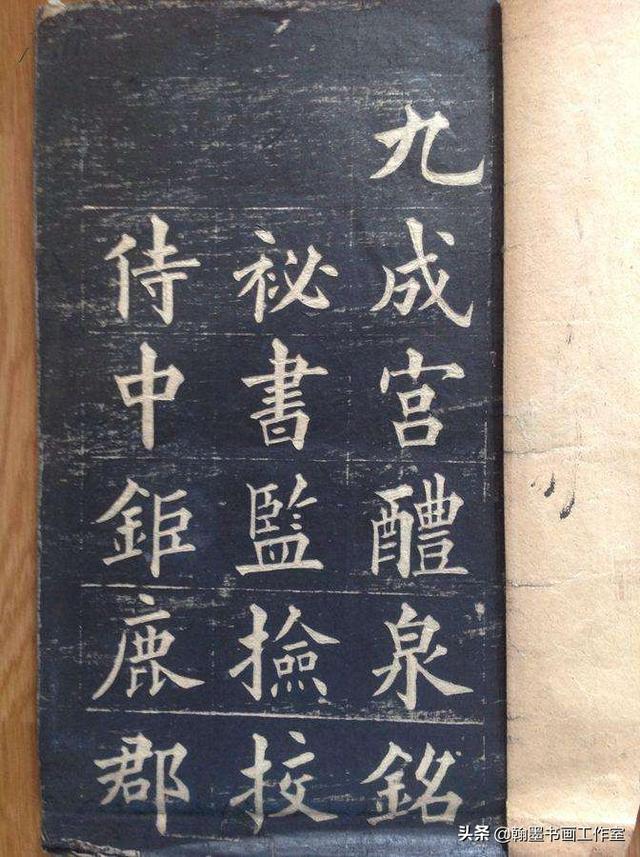 九成宫醴泉銘
祕書監撿挍
侍中鉅鹿郡
头条 @翰墨书画工作室